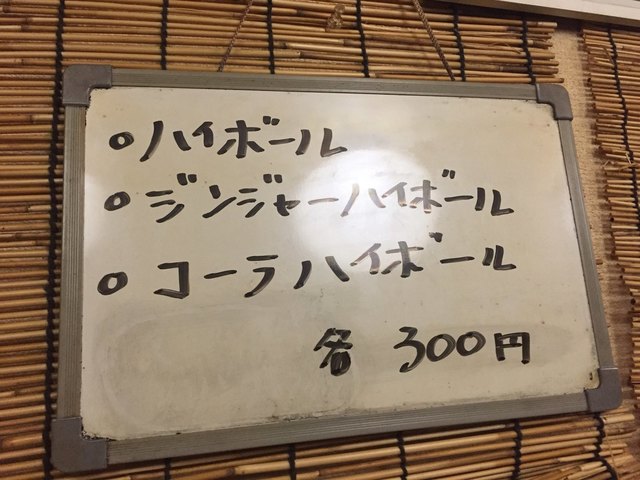 ○ハイボール
○ジンジャーハイボール
○コーラハイボール
各 300円